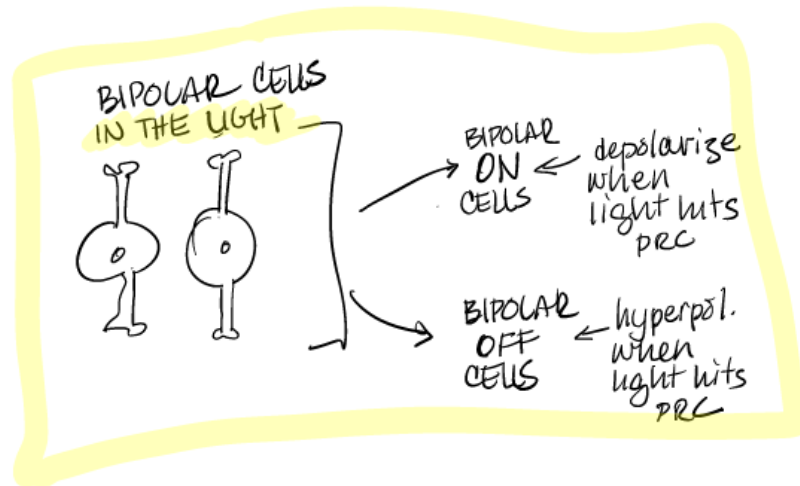 BIPOLAR CELLS
IN THE LIGHT
BIPOLAR
ON
CELLS
depolarize
when
light hits
PRC
BIPOLAR
OFF
CELLS
hyperpol.
when
light hits
PRC